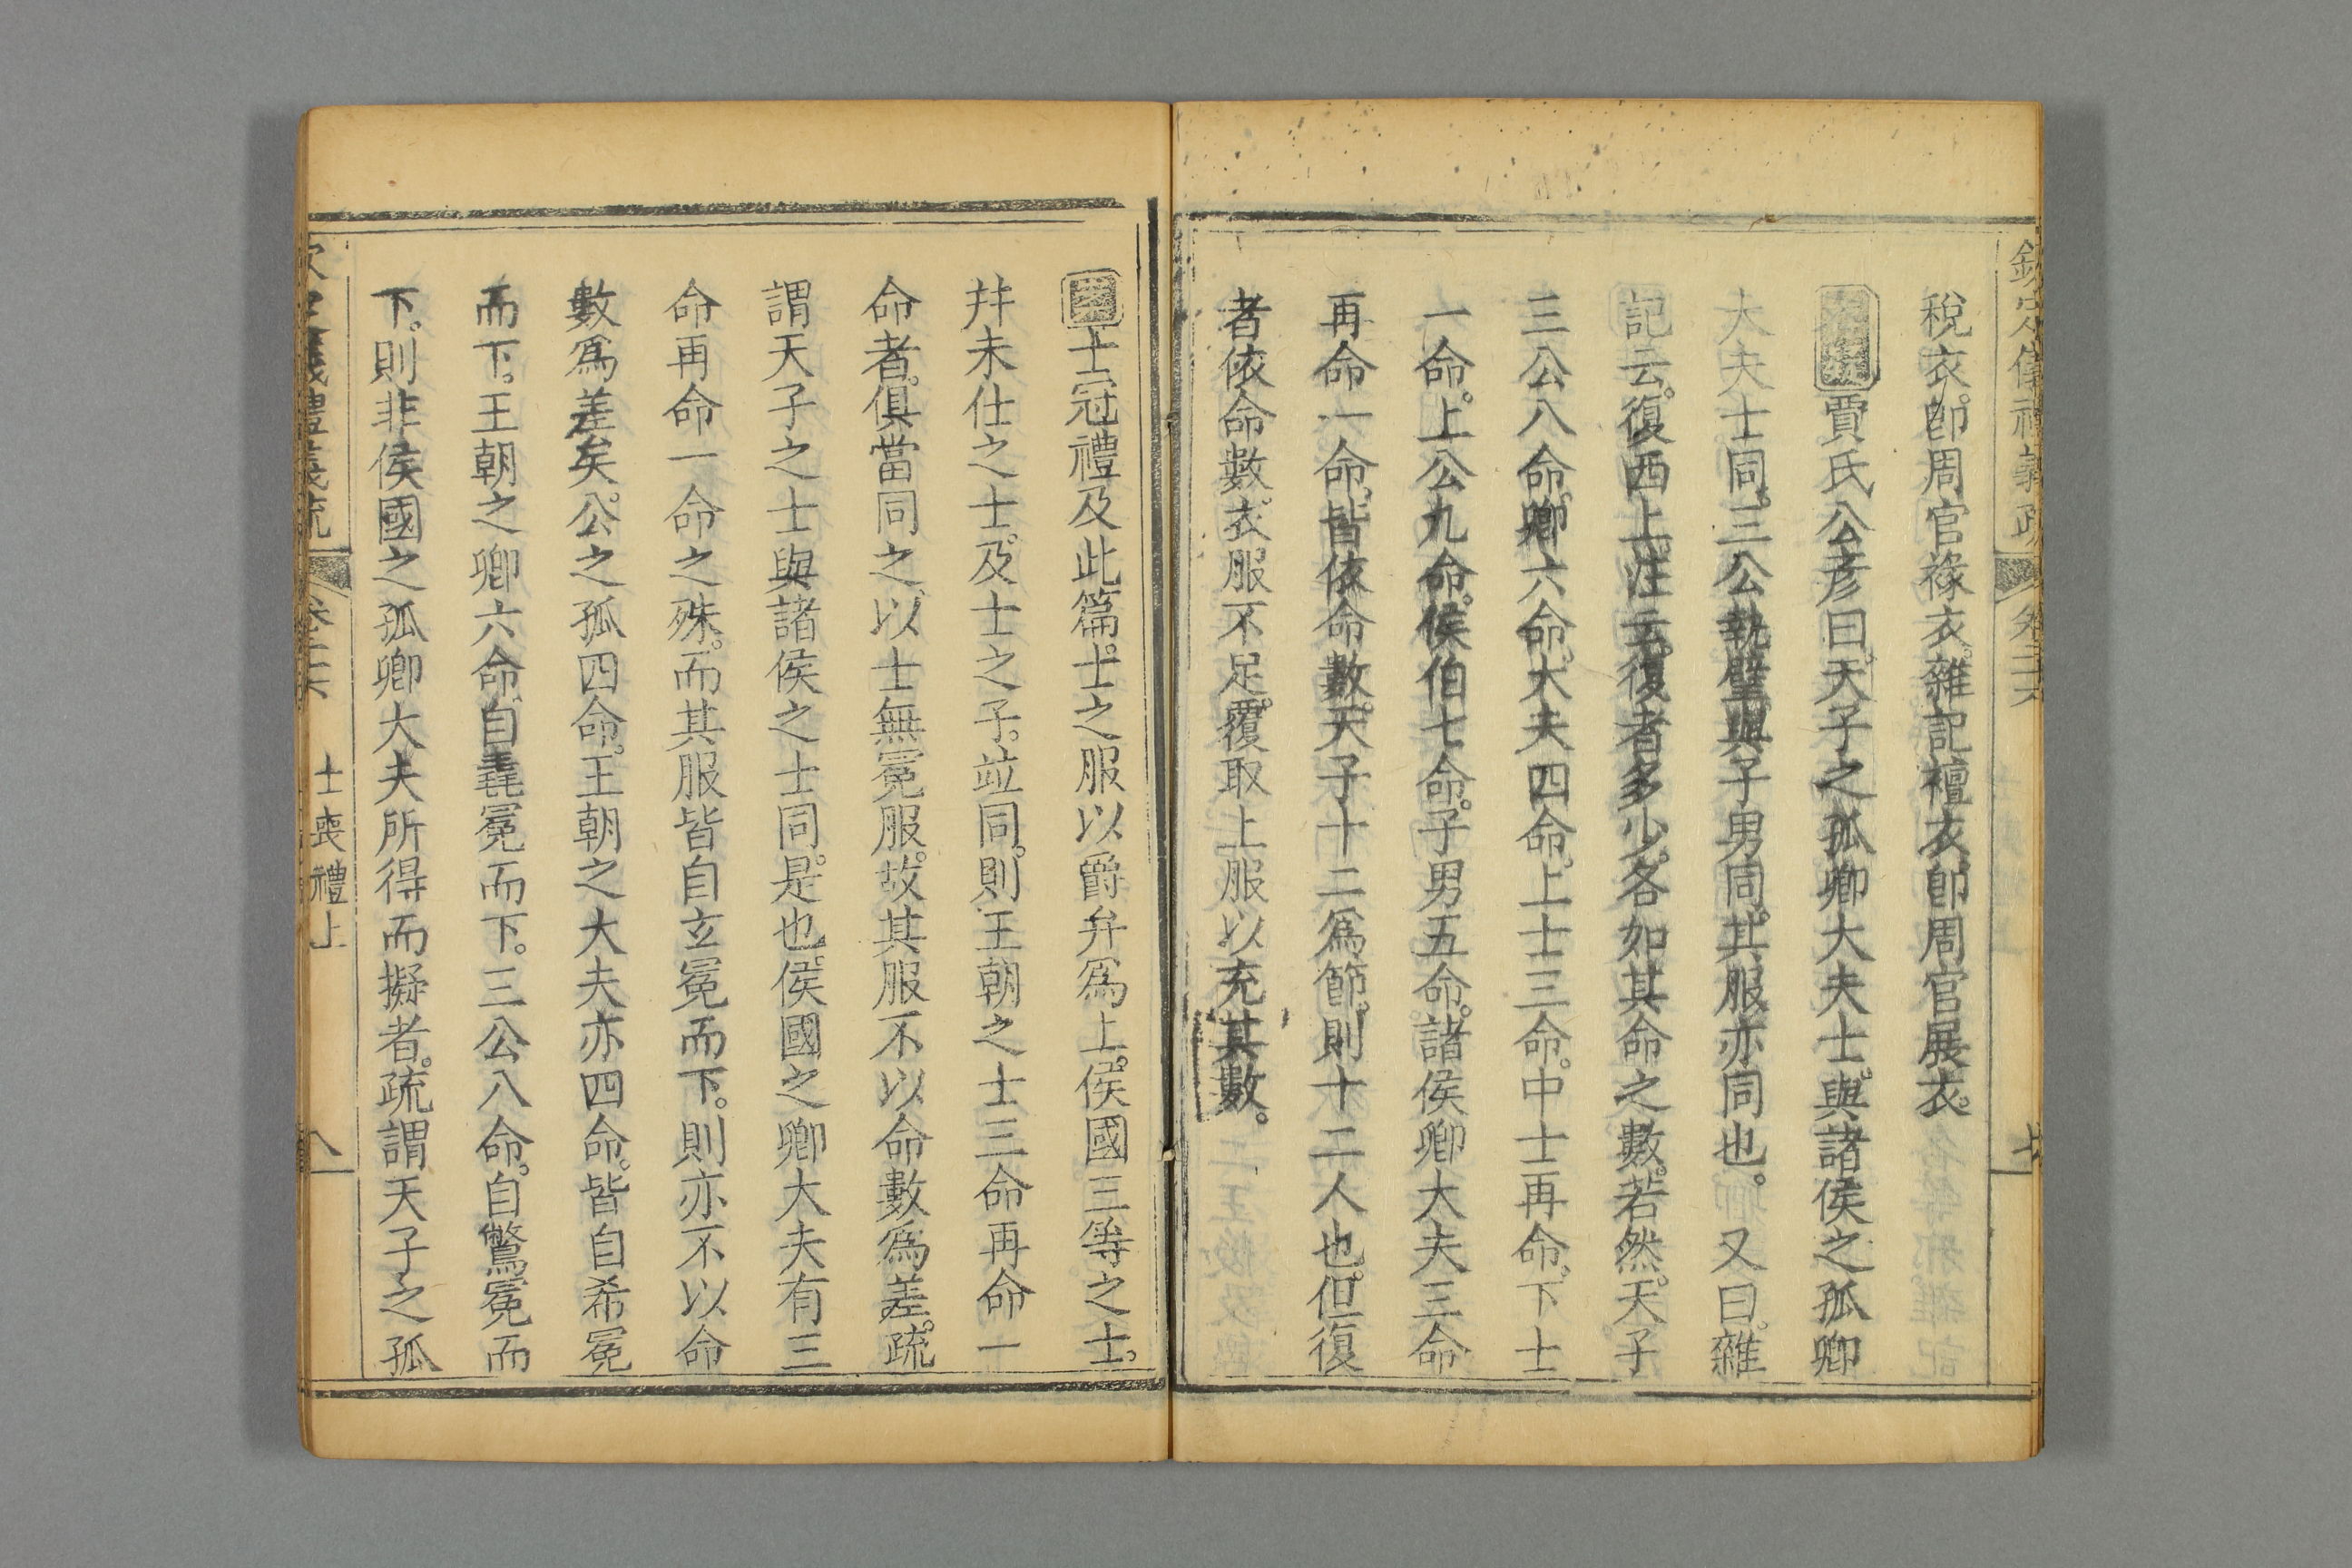 稅衣。卽周官褖衣。雜記襢衣。卽周官展衣。
賈氏公彥曰。天子之孤卿大夫士。與諸侯之孤卿
大夫士同。三公執璧與子男同。其服亦同也。又曰。雜
記云。復西上。注云。復者多少。各如其命之數。若然。天子
三公八命。卿六命。大夫四命。上士三命。中士再命。下士
一命。上公九命。侯伯七命。子男五命。諸侯卿大夫三命
再命一命。皆依命數。天子十二爲節。則十二人也。但復
者依命數。衣服不足。覆取上服以充其數。
士冠禮及此篇。士之服以爵弁爲上。侯國三等之士。
幷未仕之士。及士之子。竝同。則王朝之士三命再命一
命者。俱當同之。以士無冕服。故其服不以命數爲差。疏
謂天子之士與諸侯之士同。是也。侯國之卿大夫有三
命再命一命之殊。而其服皆自玄冕而下。則亦不以命
數爲差矣。公之孤四命。王朝之大夫亦四命。皆自希冕
而下。王朝之卿六命。自毳冕而下。三公八命。自鷩冕而
下。則非侯國之孤卿大夫所得而擬者。疏謂天子之孤
士喪禮上
八